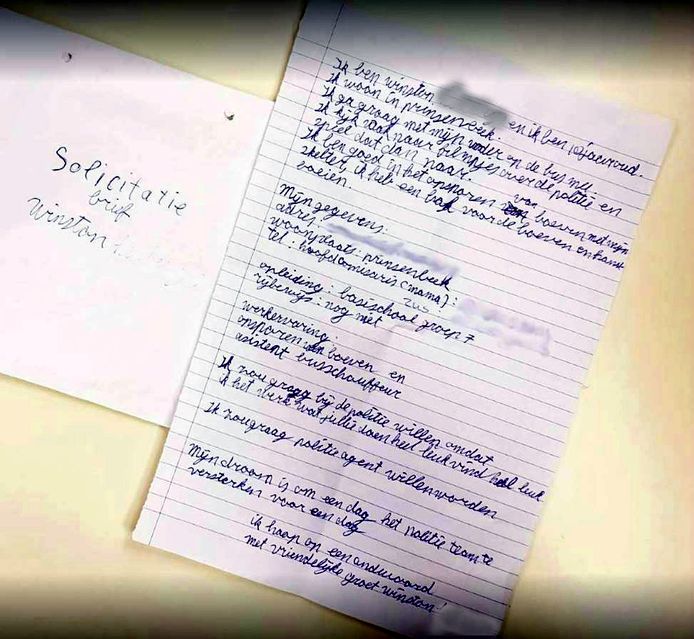 Solicitatie
brief
Winston
Ik ben winston en ik ben 10 jaar oud.
ik woon in prinsenbeek.
Ik ga graag met mijn vader op de bus mee
ik kijk vaak naar filmpjes over de politie en
speel dat dan naar.
Ik ben goed in het opsporen van boeven met mijn
skelter, ik heb een bak voor de boeven en kan
zoeien.
Mijn gegevens:
adres:
woonplaats: prinsenbeek
tel: hoofdcomisaris (mama):
zus
opleiding: basischool groep 7
rijbewijs: nog niet
werkervaring:
opsporen van boeven en
asistent busschauffeur
Ik zou graag bij de politie willen omdat
ik het werk wat jullie doen het leuk vind heel leuk
ik zougraag politie agent willen worden
Mijn droom is om een dag het politie team te
versterken voor een dag
ik hoop op een andwoord
met vriendelijke groet winston!